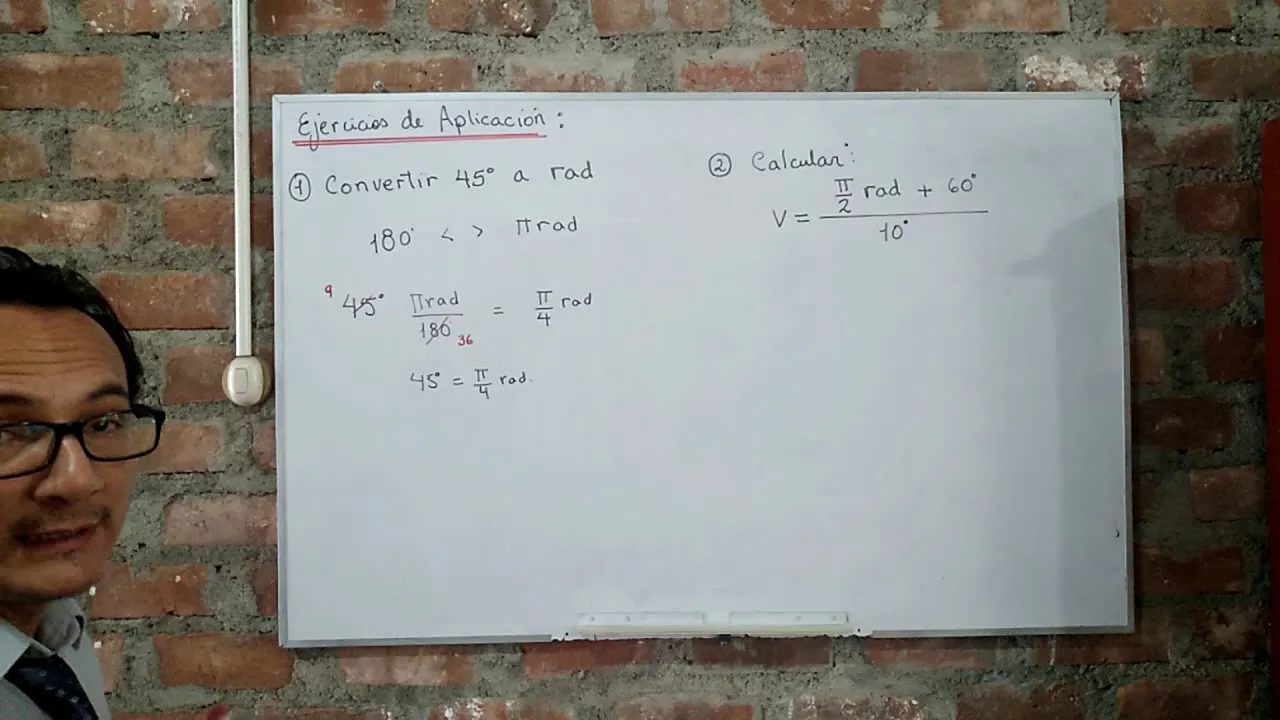 Ejercicios de Aplicación:
① Convertir 45° a rad
180° < > π rad
9
45° πrad/180 = π/4 rad
36
45° = π/4 rad.
② Calcular:
V = (π/2 rad + 60°)/10°